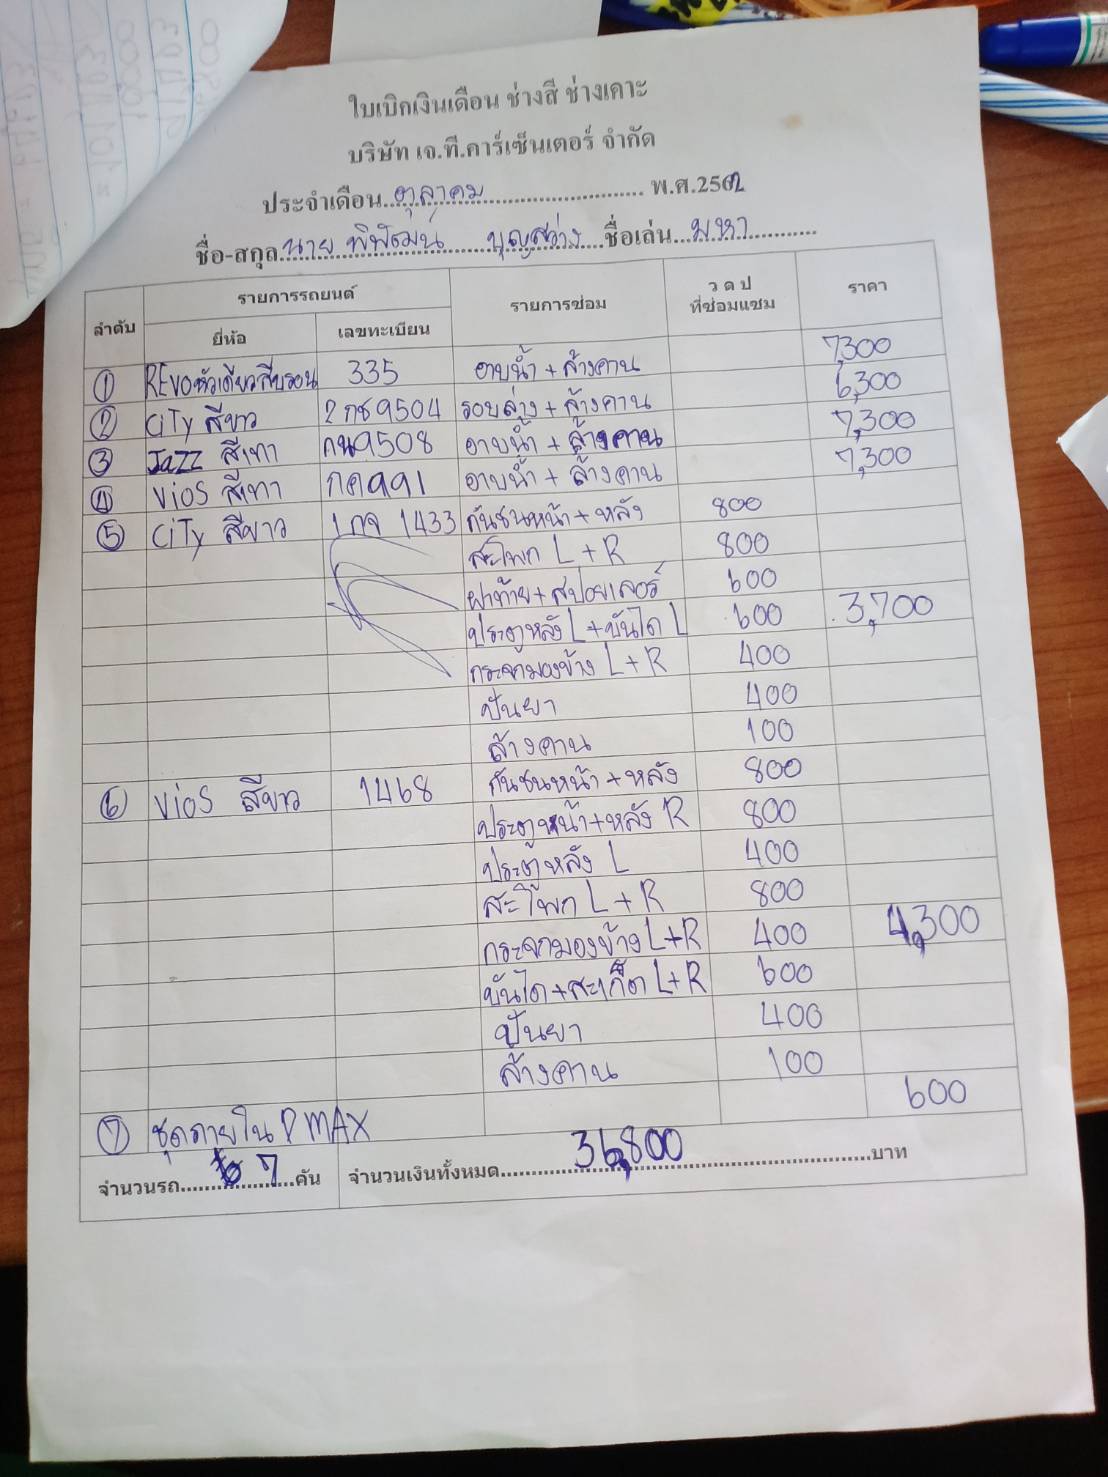 ใบเบิกเงินเดือน ช่างสี ช่างเคาะ
บริษัท เจ.ที.คาร์เซ็นเตอร์ จำกัด
ประจำเดือน ตุลาคม พ.ศ.2562
ชื่อ-สกุล นาย พิพัฒน์ บุญสว่าง ชื่อเล่น มหา
ลำดับ รายการรถยนต์ รายการซ่อม ว ด ป ที่ซ่อมแซม ราคา
ยี่ห้อ เลขทะเบียน
① REVOหัวเดียวสีบรอน 335 อาบน้ำ + ล้างคาน 7,300
② CiTy สีขาว 2กช9504 รอบล่าง + ล้างคาน 6,300
③ JaZZ สีเทา กน9508 อาบน้ำ + ล้างคาน 7,300
④ ViOS สีเทา กค991 อาบน้ำ + ล้างคาน 7,300
⑤ CiTy สีขาว 1กจ 1433 กันชนหน้า + หลัง 800
สะโพก L + R 800
ฝาท้าย + สปอยเลอร์ 600
ประตูหลัง L + บันได L 600 3,700
กระจกมองข้าง L + R 400
ปั่นยา 400
ล้างคาน 100
⑥ ViOS สีขาว 1468 กันชนหน้า + หลัง 800
ประตูหน้า + หลัง R 800
ประตูหลัง L 400
สะโพก L + R 800
กระจกมองข้าง L+R 400 4,300
บันได + สะเก็ต L+R 600
ปั่นยา 400
ล้างคาน 100
⑦ ชุดภายใน D MAX 600
จำนวนรถ 7 คัน จำนวนเงินทั้งหมด 36,800 บาท